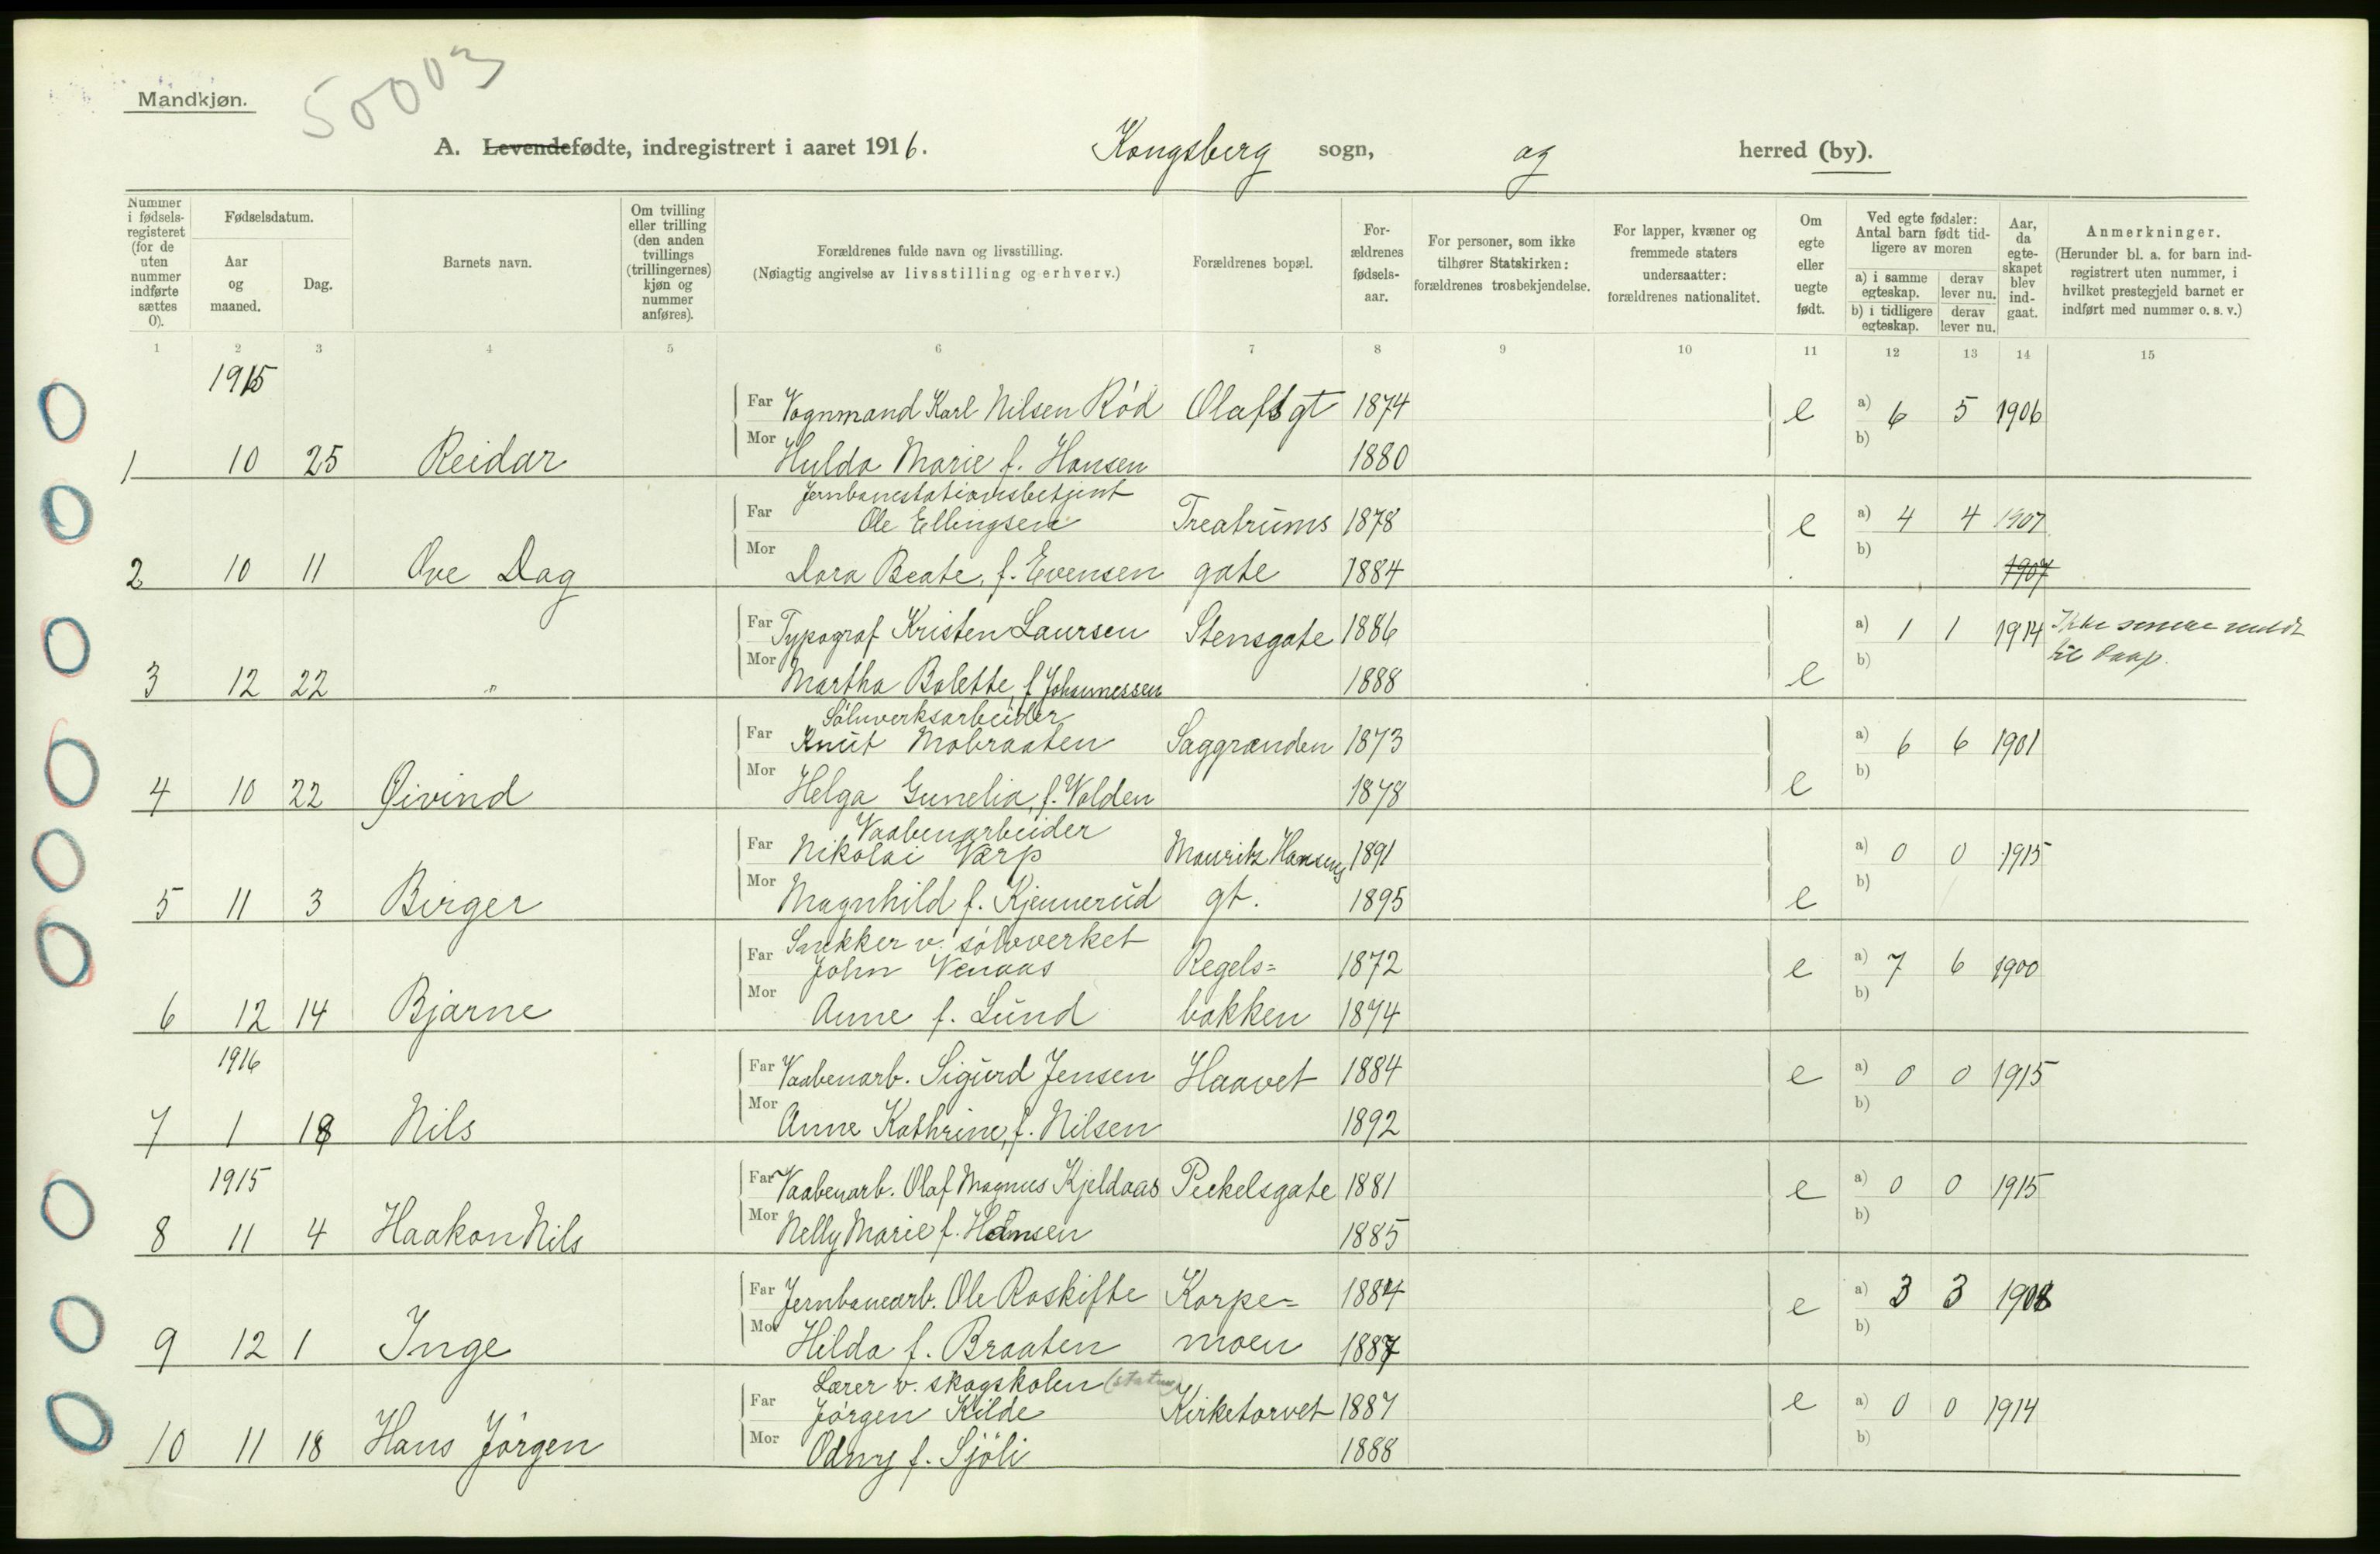 50003
Mandkjøn.
A. Levendefødte, indregistrert i aaret 1916. Kongsberg sogn, og herred (by).
Nummer i fødselsregisteret (for de uten nummer indførte sættes 0).
Fødselsdatum.
Aar og maaned.
Dag.
Barnets navn.
Om tvilling eller trilling (den anden tvillings (trillingernes) kjøn og nummer anføres).
Forældrenes fulde navn og livsstilling.
(Nøiagtig angivelse av livsstilling og erhverv.)
Forældrenes bopæl.
Forældrenes fødselsaar.
For personer, som ikke tilhører Statskirken: forældrenes trosbekjendelse.
For lapper, kvæner og fremmede staters undersaatter: forældrenes nationalitet.
Om egte eller uegte født.
Ved egte fødsler: Antal barn født tidligere av moren
a) i samme egteskap. derav lever nu.
b) i tidligere egteskap. derav lever nu.
Aar, da egteskapet blev indgaat.
Anmerkninger.
(Herunder bl. a. for barn indregistrert uten nummer, i hvilket prestegjeld barnet er indført med nummer o. s. v.)
1 2 3 4 5 6 7 8 9 10 11 12 13 14 15
1915
Far Vognmand Karl Nilsen Ród Olafsgt 1874 e a) 6 5 1906
1 10 25 Reidar Mor Hulda Marie f. Hansen 1880 b)
Jernbanestationsbetjent
Far Ole Ellingsen Treatrums 1878 e a) 4 4 1907
2 10 11 Ove Dag Mor Dora Beate, f. Evensen gate 1884 b) 1907
Far Typograf Kristen Laursen Stensgate 1886 a) 1 1 1914 Ikke senere meldt
til daap.
3 12 22 " Mor Martha Bolette, f Johannessen 1888 e b)
Sólvverksarbeider
Far Knut Mobraaten Saggrenden 1873 a) 6 6 1901
4 10 22 Øivind Mor Helga Gunelia, f. Volden 1878 e b)
Vaabenarbeider
Far Nikolai Værp Mauritz Hansens 1891 a) 0 0 1915
5 11 3 Birger Mor Magnhild f. Kjennerud gt. 1895 e b)
Snekker v. sólvverket
Far John Venaas Regels= 1872 e a) 7 6 1900
6 12 14 Bjarne Mor Anne f. Lund bakken 1874 b)
1916
Far Vaabenarb. Sigurd Jensen Haavet 1884 e a) 0 0 1915
7 1 18 Nils Mor Anne Kathrine, f. Nilsen 1892 b)
1915
Far Vaabenarb. Olaf Magnus Kjeldaas Peckelsgate 1881 e a) 0 0 1915
8 11 4 Haakon Nils Mor Nelly Marie f. Hansen 1885 b)
Far Jernbanearb. Ole Roskifte Korpe= 1884 e a) 3 3 1908
9 12 1 Inge Mor Hilda f. Braaten moen 1887 b)
Lærer v. skogskolen
Far Jórgen Kilde Kirketorvet 1887 e a) 0 0 1914
10 11 18 Hans Jórgen Mor Odny f. Sjöli 1888 b)